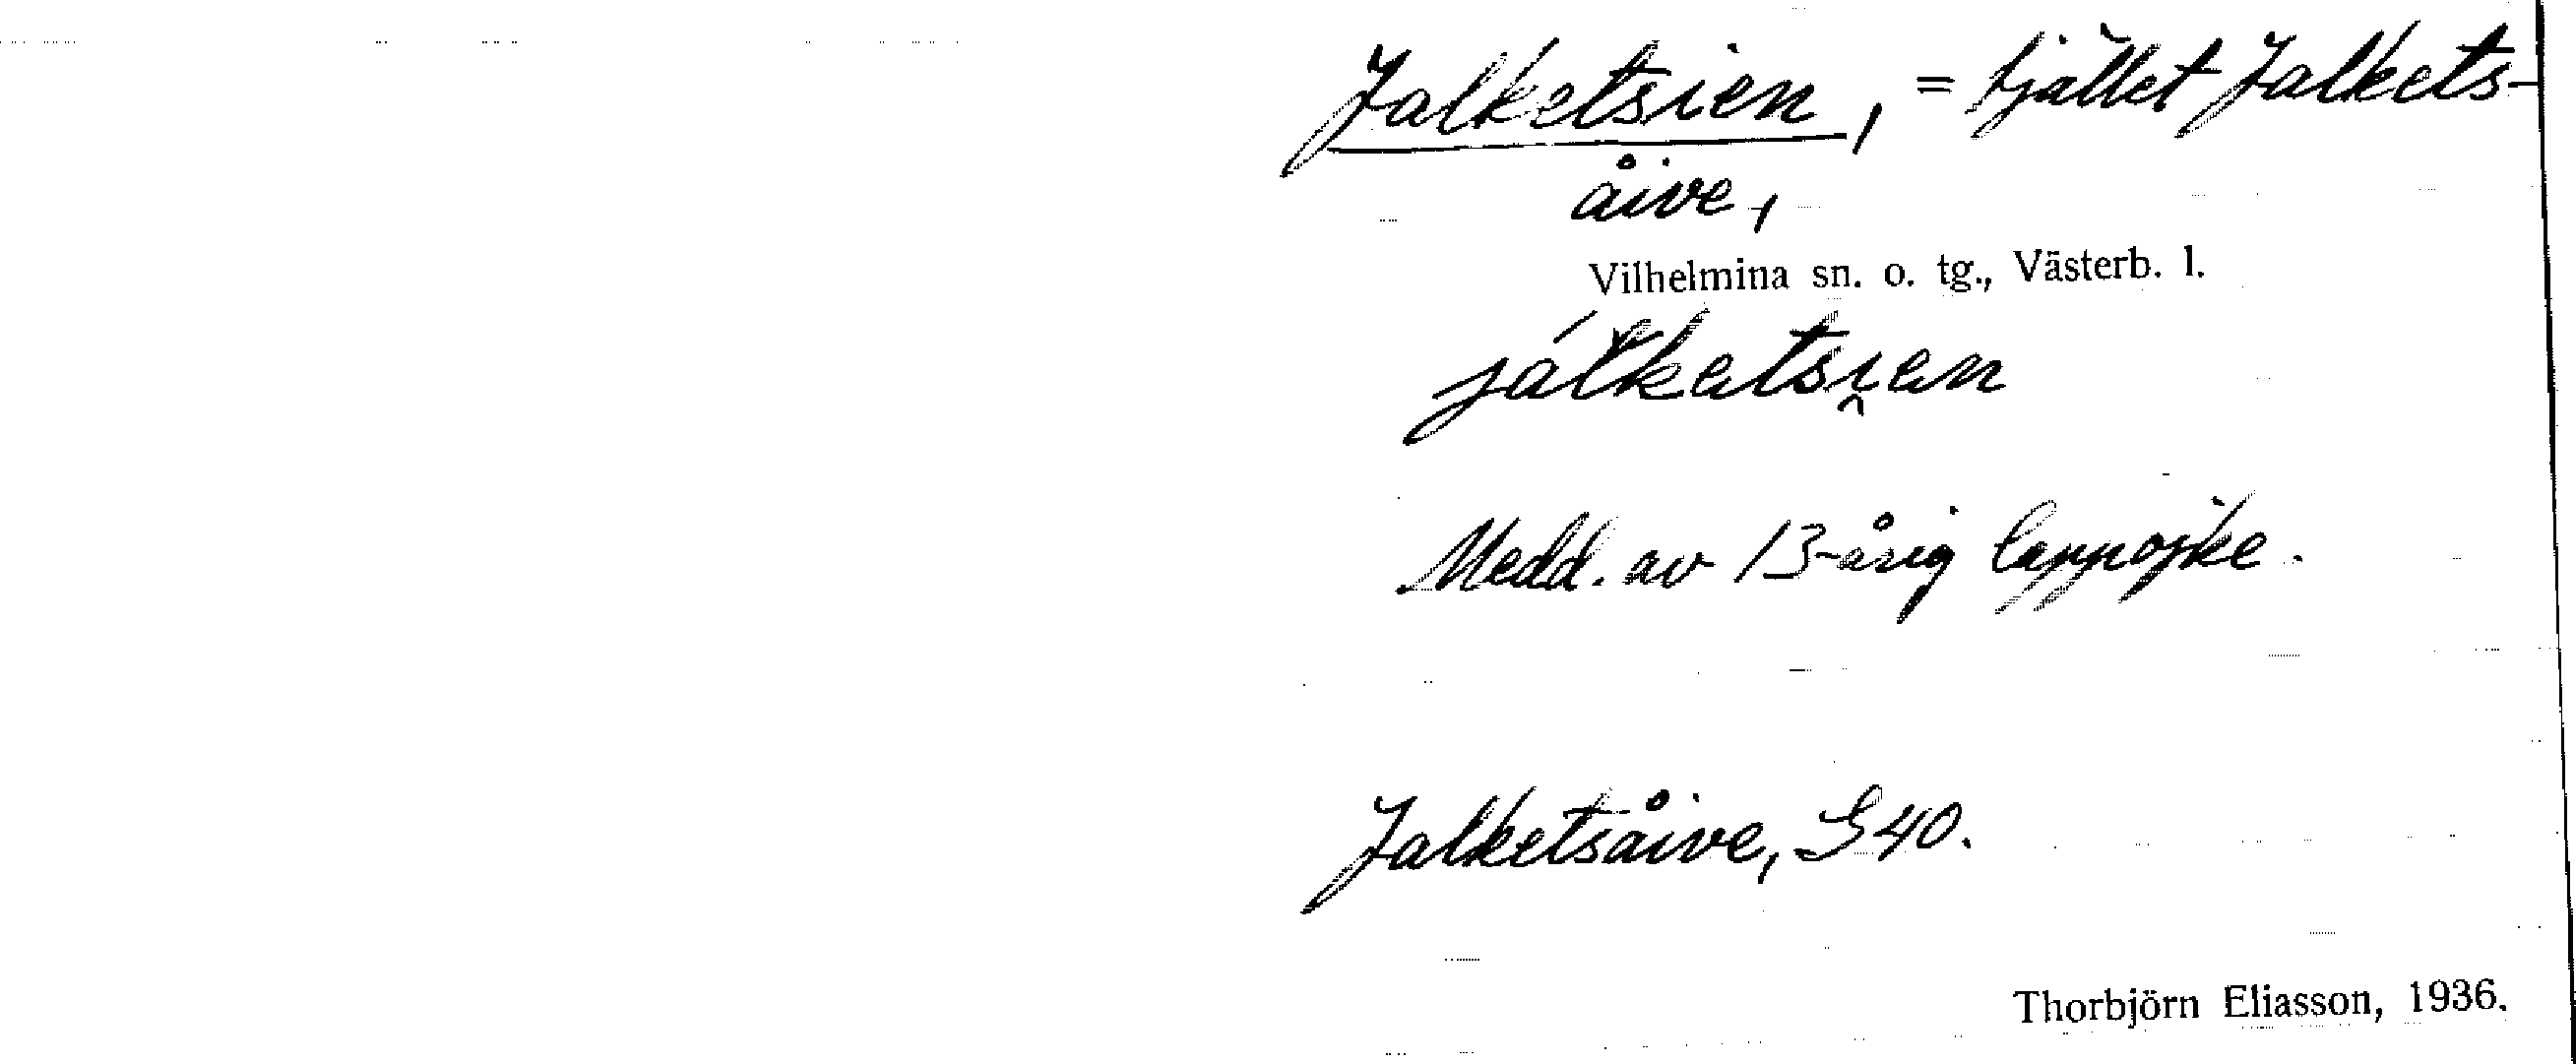 Jalketsien, = fjället Jalkets-
åive,
Vilhelmina sn. o. tg., Västerb. l.
jálketsi̯en
Medd. av 13-årig lappojke.
Jalketsåive, G40.
Thorbjörn Eliasson, 1936.